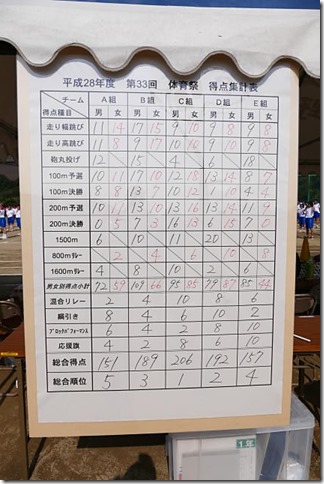 平成28年度 第33回 体育祭 得点集計表
チーム A組 B組 C組 D組 E組
得点種目 男 女 男 女 男 女 男 女 男 女
走り幅跳び 11 14 17 15 9 10 9 8 9 8
走り高跳び 11 8 9 17 10 10 9 9 8
砲丸投げ 12 15 4 6 18
100m予選 10 11 17 10 12 18 13 14 8 7
100m決勝 8 8 13 7 10 12 1 10 4 4
200m予選 10 11 10 13 13 16 13 14 11 9
200m決勝 0 5 7 3 16 13 6 15 7 0
1500m 6 10 11 20 13
800mリレー 2 4 6 10 8
1600mリレー 4 8 10 2 6
男女別得点小計 72 59 109 66 95 85 79 87 85 44
混合リレー 2 4 10 8 6
綱引き 8 4 6 10 2
ブロックパフォーマンス 6 4 2 8 10
応援旗 4 2 8 6 10
総合得点 151 189 206 192 157
総合順位 5 3 1 2 4
1年